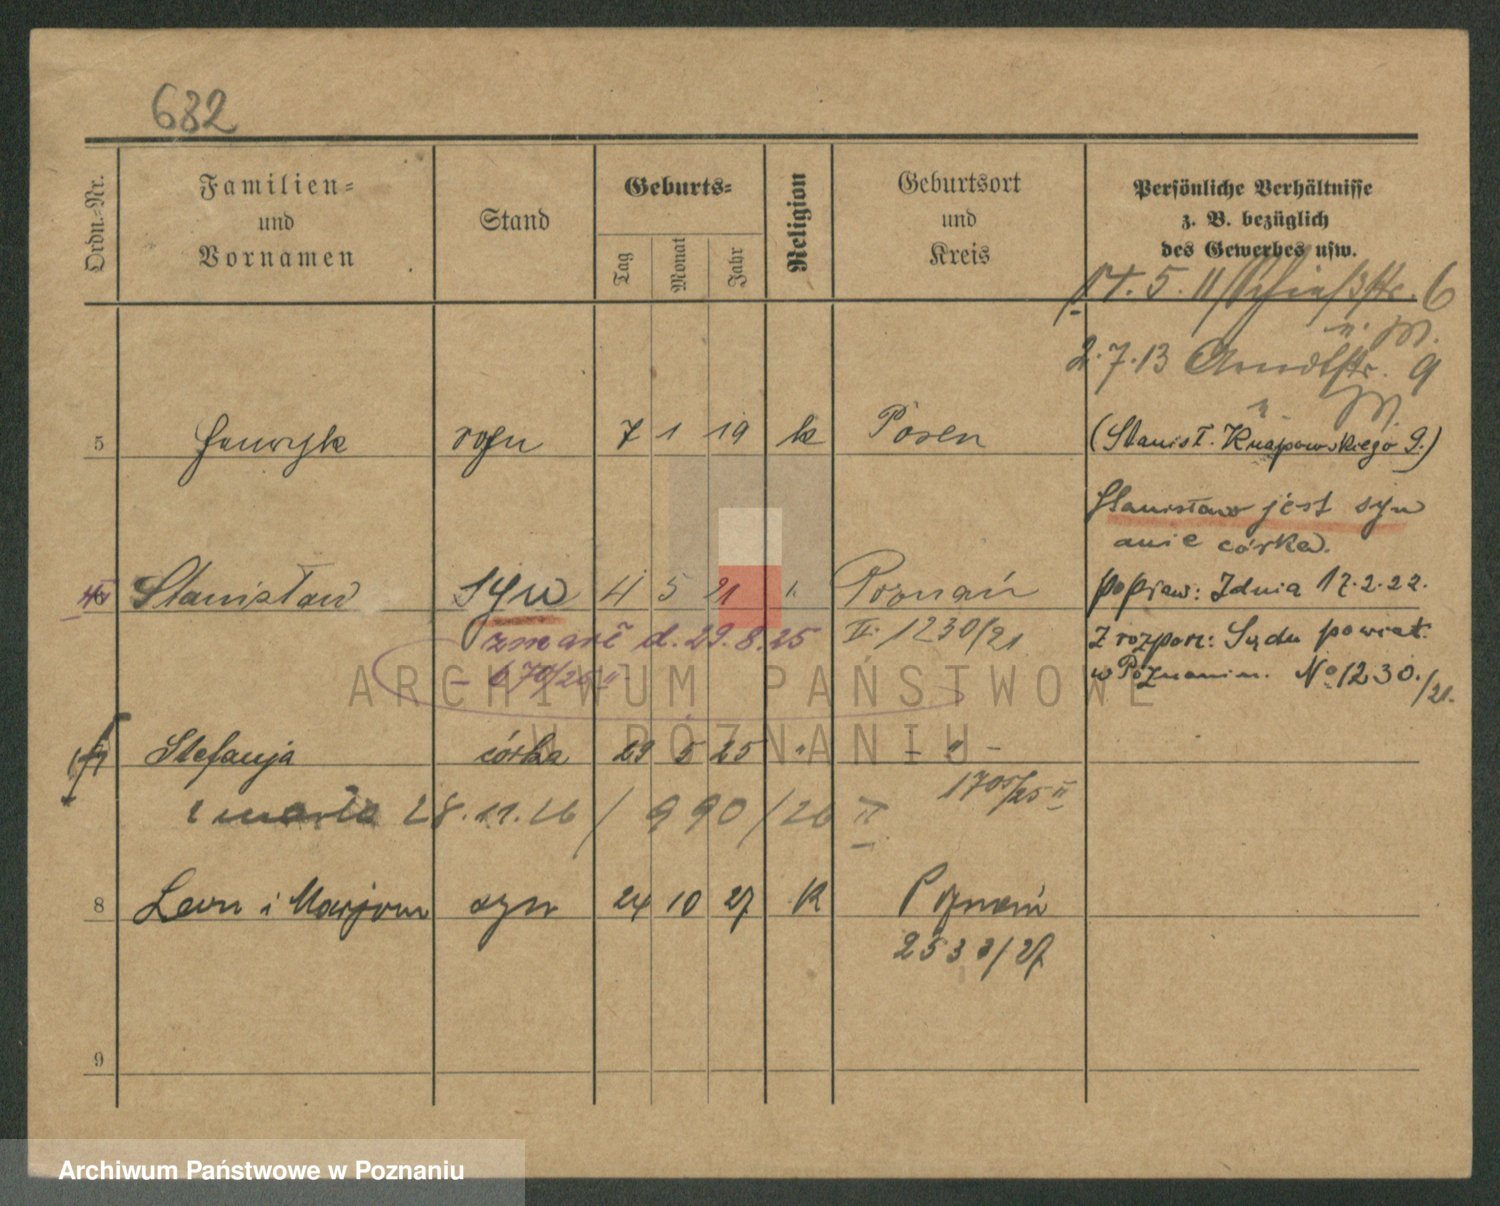 632
Ordn.-Nr.
Familien-
und
Vornamen
Stand
Geburts-
Tag
Monat
Jahr
Religion
Geburtsort
und
Kreis
Persönliche Verhältnisse
z. B. bezüglich
des Gewerbes usw.
17. 5. 11 Schießstr. 6
2. 7. 13 Arndtstr. 9
5 Henryk syn 7 1 19 k Posen
(Stanisł. Knapowskiego 9.)
Stanisław jest syn
a nie córka.
Stanisław syn 4 5 21 Poznań
popraw: Zdnia 17.2.22.
II. 1230/21
Z rozporz: Sądu powiat.
zmarł d. 29.8.25
w Poznaniu. No 1230./21.
- 670/25 II -
ARCHIWUM PAŃSTWOWE
W POZNANIU
Stefanja córka 29 5 25 " - " -
1705/25 II
zmarła 28.11.26 / 990/26 II
8 Leon i Marjan syn 24 10 27 K Poznań
2533/27
9
Archiwum Państwowe w Poznaniu